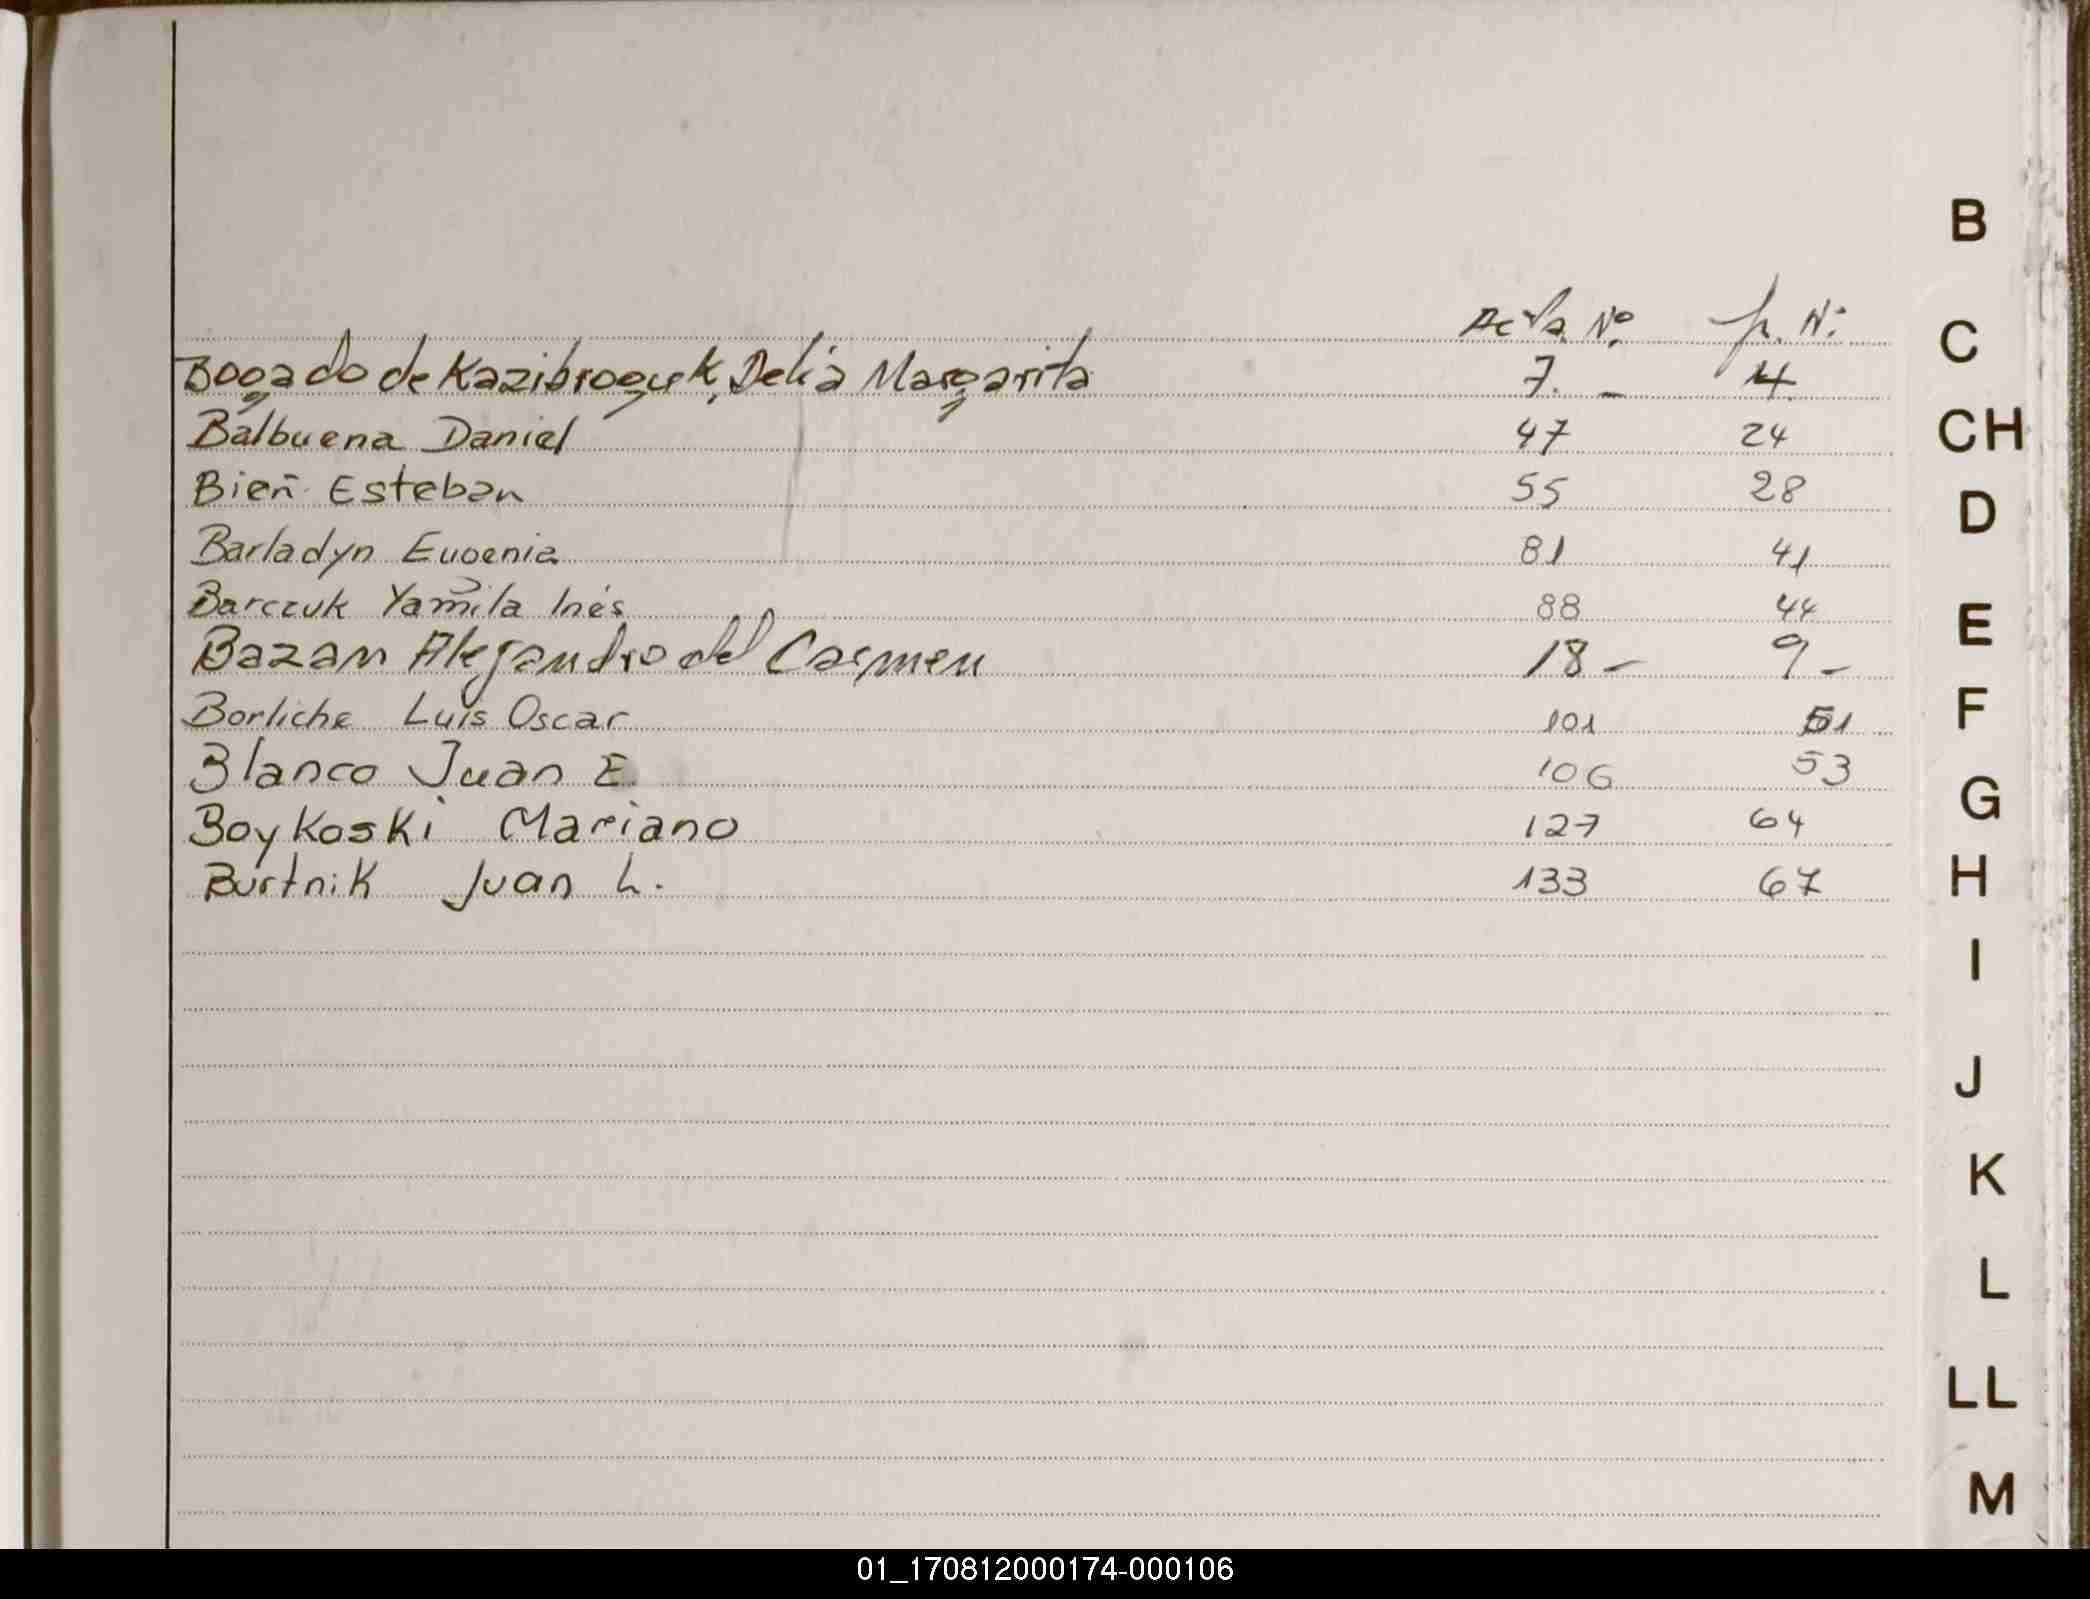 B
Acta Nº f. Nº
C
Bogado de Kazibroguk, Delia Margarita 7. - 4
Balbuena Daniel 47 24
CH
Bieñ Esteban 55 28
D
Barladyn Eugenia 81 41
Barczuk Yamila Inés 88 44
E
Bazan Alejandro del Carmen 18 - 9 -
Borliche Luis Oscar 101 51
F
Blanco Juan E. 106 53
G
Boykoski Mariano 127 64
Burtnik Juan L. 133 67
H
I
J
K
L
LL
M
01_170812000174-000106